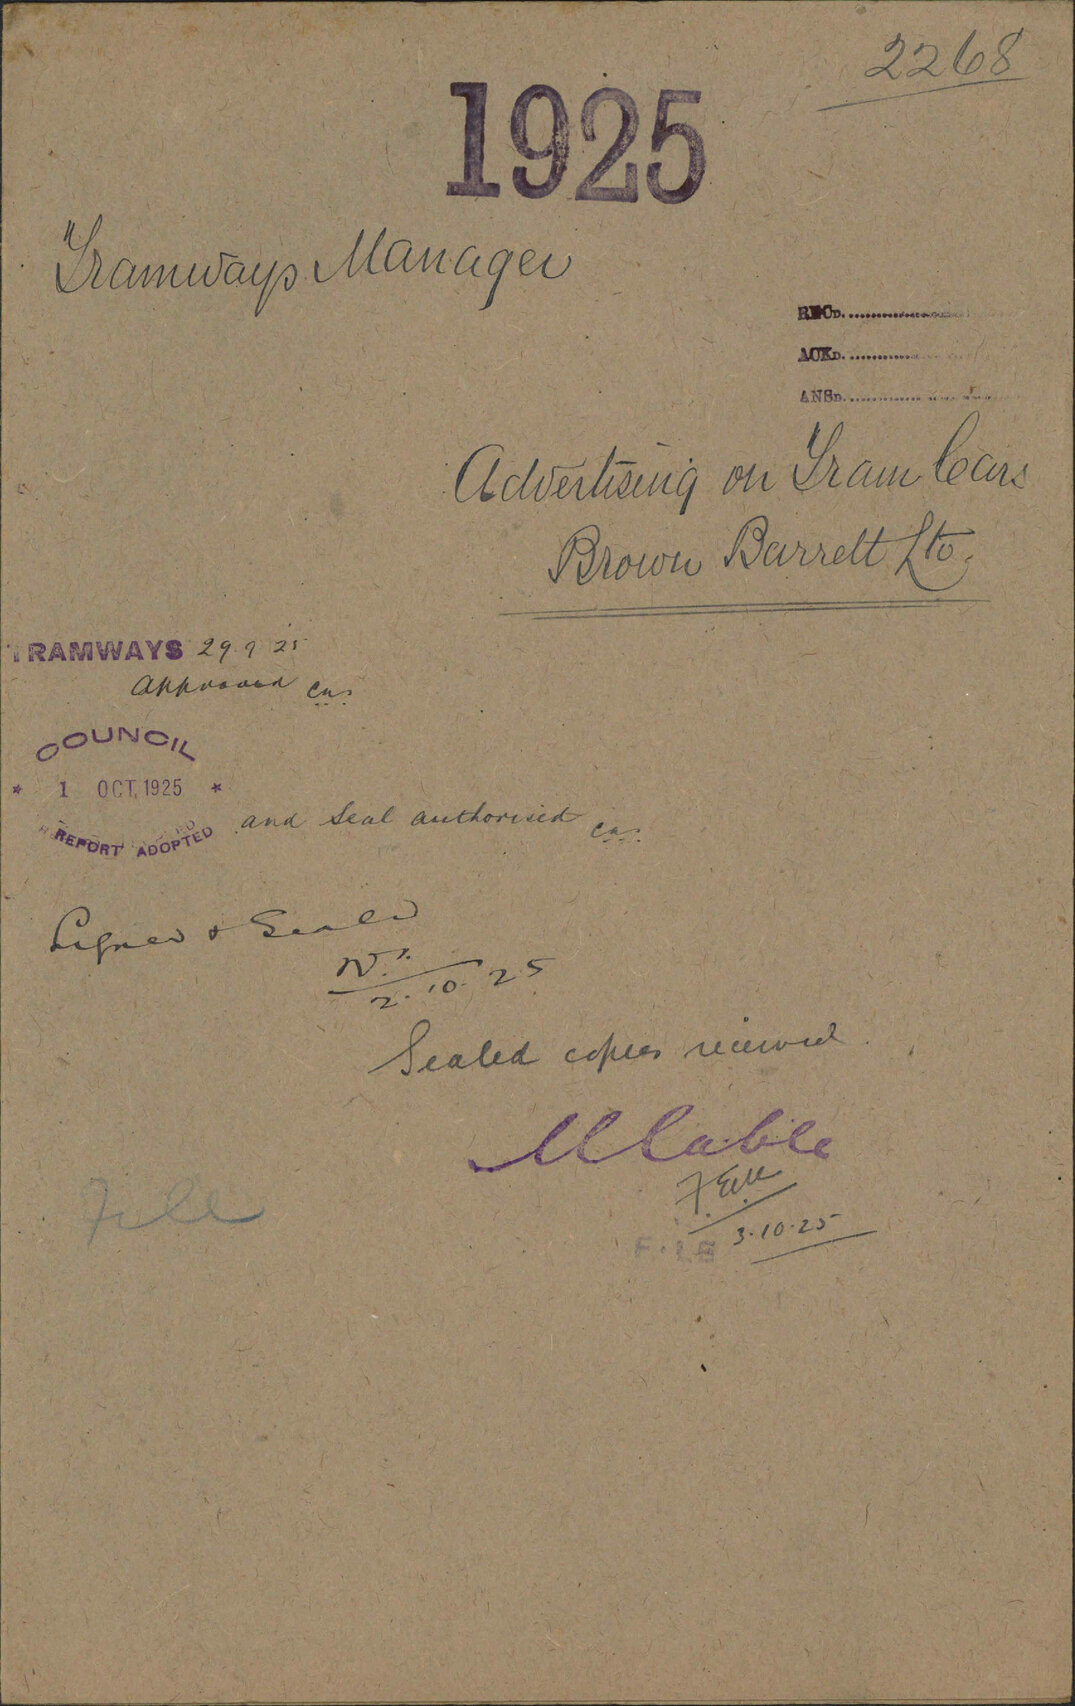 2268
1925
Tramways Manager
RECD.
ACKD.
ANSD.
Advertising on Tram Cars
Brown Barrett Ltd.
TRAMWAYS 29.9.25
Approved
COUNCIL
* 1 OCT. 1925 *
REPORT ADOPTED
and Seal authorised
Signed & Sealed
2.10.25
Sealed copies received.
File
3.10.25
FILE